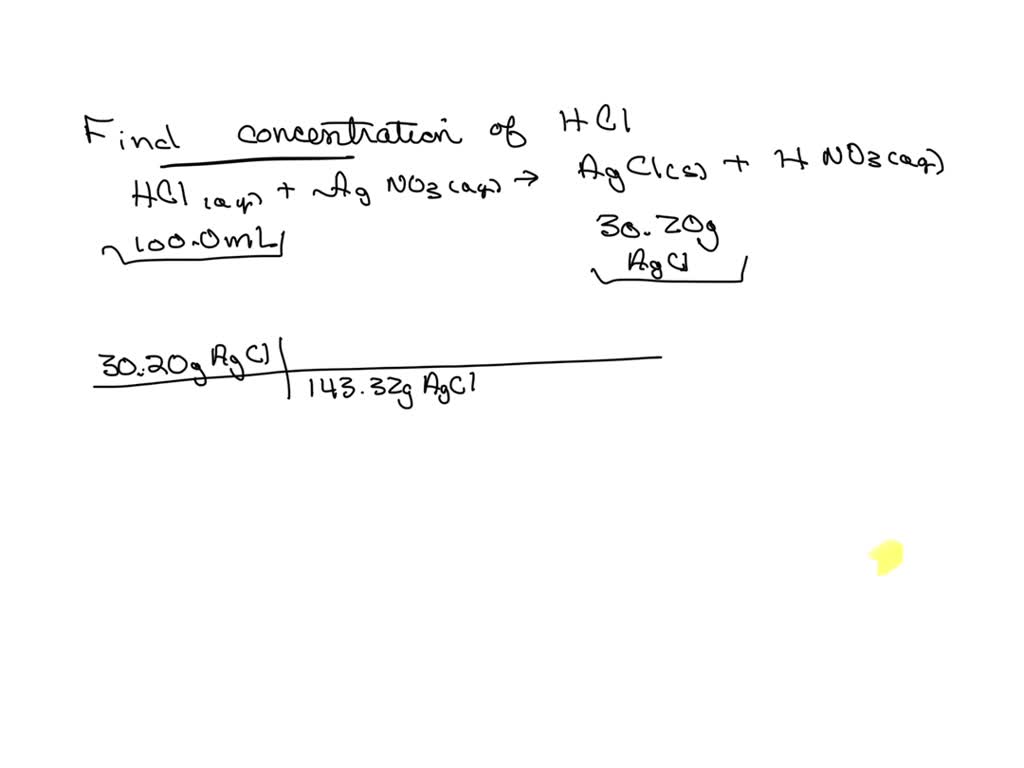 Find concentration of HCl
HCl (aq) + Ag NO3 (aq) → AgCl(s) + H NO3 (aq)
100.0mL 30.20g
AgCl
30.20g AgCl
143.32g AgCl